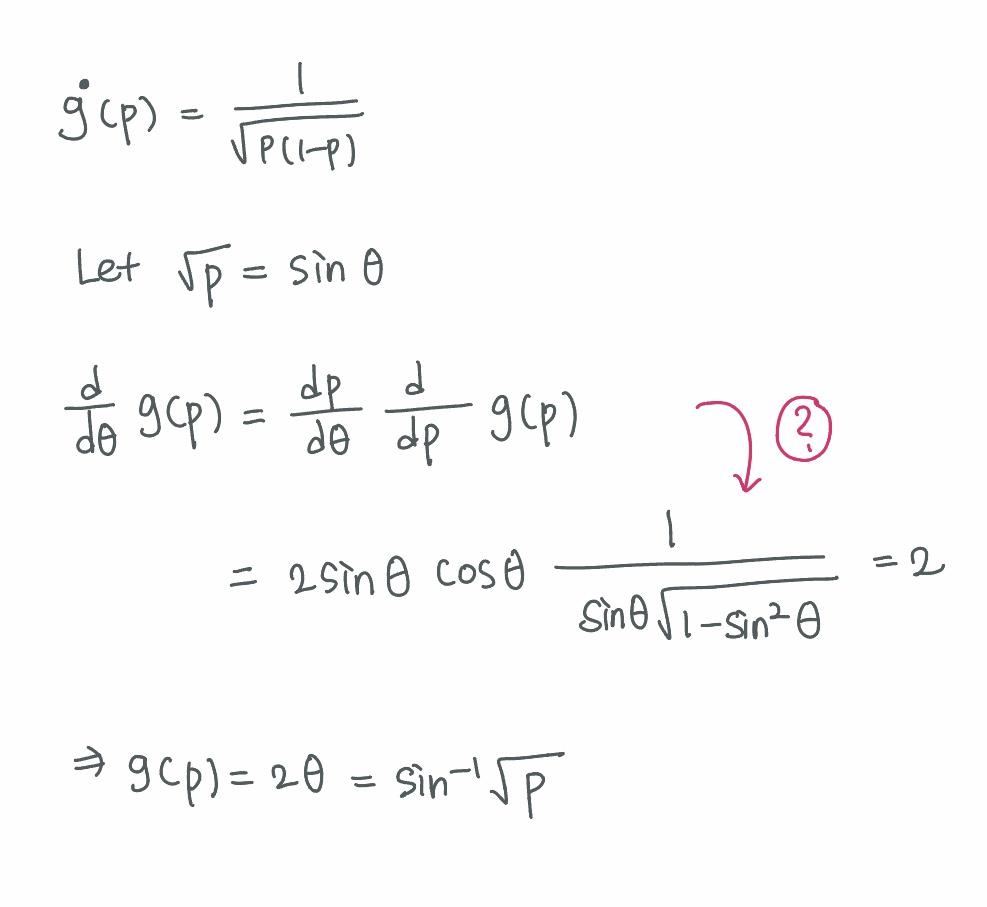 ġ(p) = 1/√(p(1-p))
Let √p = sin θ
d/dθ g(p) = dp/dθ d/dp g(p) ?
= 2 sin θ cos θ 1/(sin θ √(1-sin² θ)) = 2
⇒ g(p) = 2θ = sin⁻¹ √p